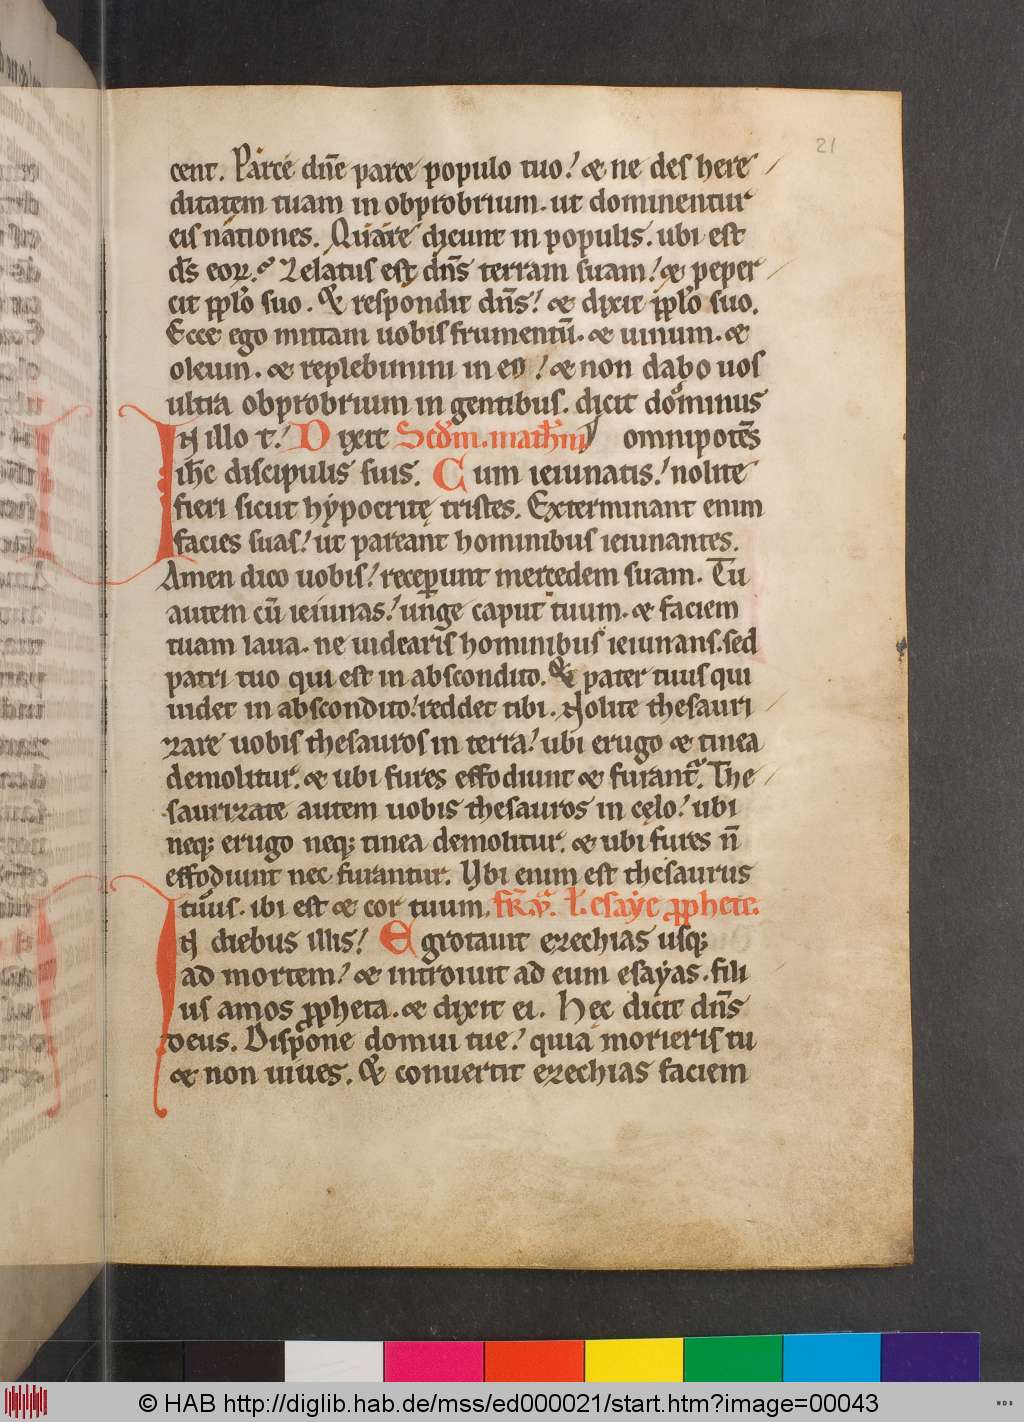 21
cent. Parce dn̄e parce populo tuo! & ne des here
ditatem tuam in obprobrium. ut dominentur
eis nationes. Quare dicunt in populis. ubi est
ds̄ eoꝝ.? Zelatus est dn̄s terram suam! & peper
cit pp̄lo suo. & respondit dn̄s! & dixit pp̄lo suo.
Ecce ego mittam uobis frumentū. & uinum. &
oleum. & replebimini in eo! & non dabo uos
ultra obprobrium in gentibus. dicit dominus
In illo t.! Dixit Scd̄m. matħm omnipotēs
ih̄c discipulis suis. Cum ieiunatis! nolite
fieri sicut hypocritę tristes. Exterminant enim
facies suas! ut pareant hominibus ieiunantes.
Amen dico uobis! receperunt mercedem suam. Tu
autem cū ieiunas! unge caput tuum. & faciem
tuam laua. ne uidearis hominibus ieiunans. sed
patri tuo qui est in abscondito. & pater tuus qui
uidet in abscondito! reddet tibi. Nolite thesauri
zare uobis thesauros in terra! ubi erugo & tinea
demolitur. & ubi fures effodiunt & furant᷑. The
saurizate autem uobis thesauros in cęlo! ubi
neq; erugo neq; tinea demolitur. & ubi fures n̄
effodiunt nec furantur. Ubi enim est thesaurus
tuus. ibi est & cor tuum. fr̄. v̄. l. esaye ꝓphete.
In diebus illis! Egrotauit ezechias usq;
ad mortem! & introiuit ad eum esayas. fili
us amos ꝓpheta. & dixit ei. Hec dicit dn̄s
deus. Dispone domui tue! quia morieris tu
& non uiues. & conuertit ezechias faciem
© HAB http://diglib.hab.de/mss/ed000021/start.htm?image=00043